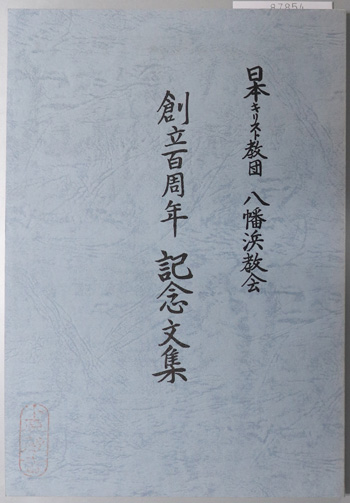 日本キリスト教団 八幡浜教会
創立百周年 記念文集
87954